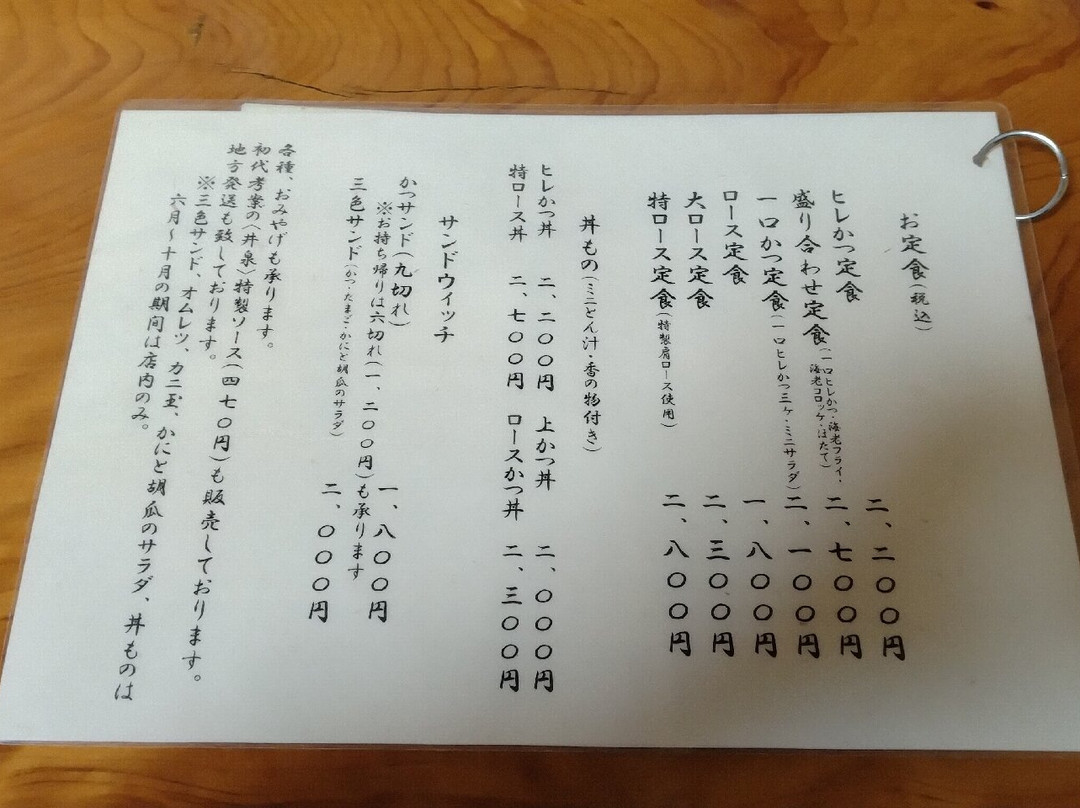 お定食(税込)
ヒレかつ定食 二、二〇〇円
盛り合わせ定食(一口ヒレかつ・海老フライ・海老コロッケ・ほたて) 二、七〇〇円
一口かつ定食(一口ヒレかつ三ヶ・ミニサラダ) 二、一〇〇円
ロース定食 一、八〇〇円
大ロース定食 二、三〇〇円
特ロース定食(特製肩ロース使用) 二、八〇〇円
丼もの(ミニとん汁・香の物付き)
ヒレかつ丼 二、二〇〇円 上かつ丼 二、〇〇〇円
特ロース丼 二、七〇〇円 ロースかつ丼 二、三〇〇円
サンドウィッチ
かつサンド(九切れ) 一、八〇〇円
※お持ち帰りは六切れ(一、二〇〇円)も承ります
三色サンド(かつ・たまご・かにと胡瓜のサラダ) 二、〇〇〇円
各種、おみやげも承ります。
初代考案の〈井泉〉特製ソース(四七〇円)も販売しております。
地方発送も致しております。
※三色サンド、オムレツ、カニ玉、かにと胡瓜のサラダ、丼ものは
六月~十月の期間は店内のみ。